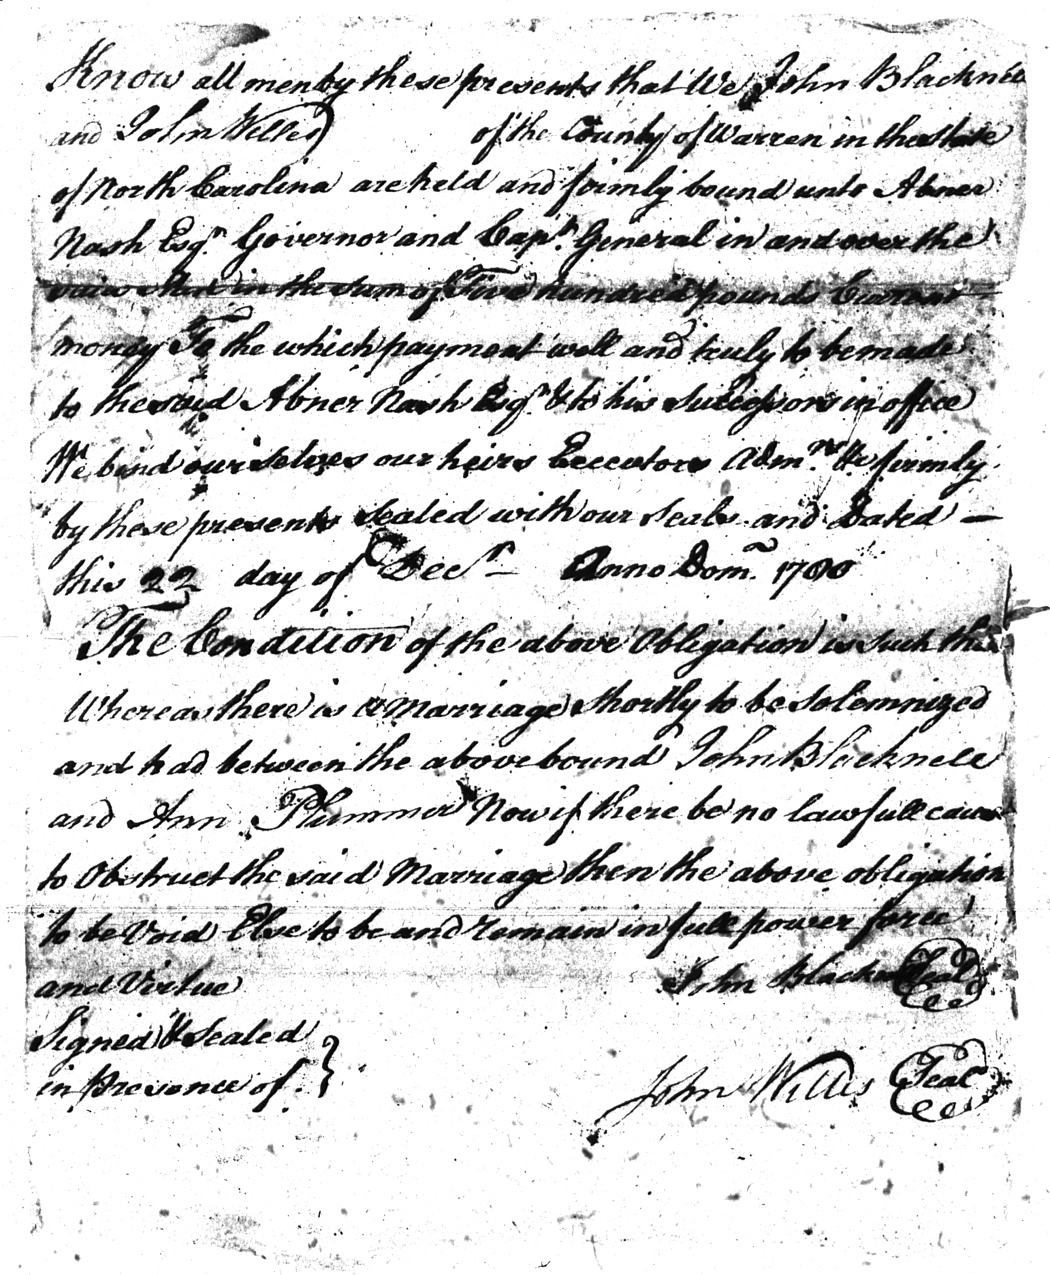 Know all men by these presents that We John Blacknell
and John Willis of the County of Warren in the State
of North Carolina are held and firmly bound unto Abner
Nash Esqr. Governor and Capt. General in and over the
in the sum of Five hundred pounds Curant
money To the which payment well and truly to be made
to the said Abner Nash Esqr. & to his Successors in office
We bind ourselves our heirs Executors Admrs. &c firmly
by these presents Sealed with our seals and Dated —
this 22 day of Decr — Anno Dom. 1780
The Condition of the above Obligation is such that
Whereas there is a Marriage shortly to be Solemnized
and had between the above bound John Blacknell
and Ann Plummer Now if there be no lawfull cause
to Obstruct the said Marriage then the above obligation
to be Void Else to be and remain in full power force
and Virtue John Blacknell Seal
Signed & sealed
in Presence of John Willis Seal